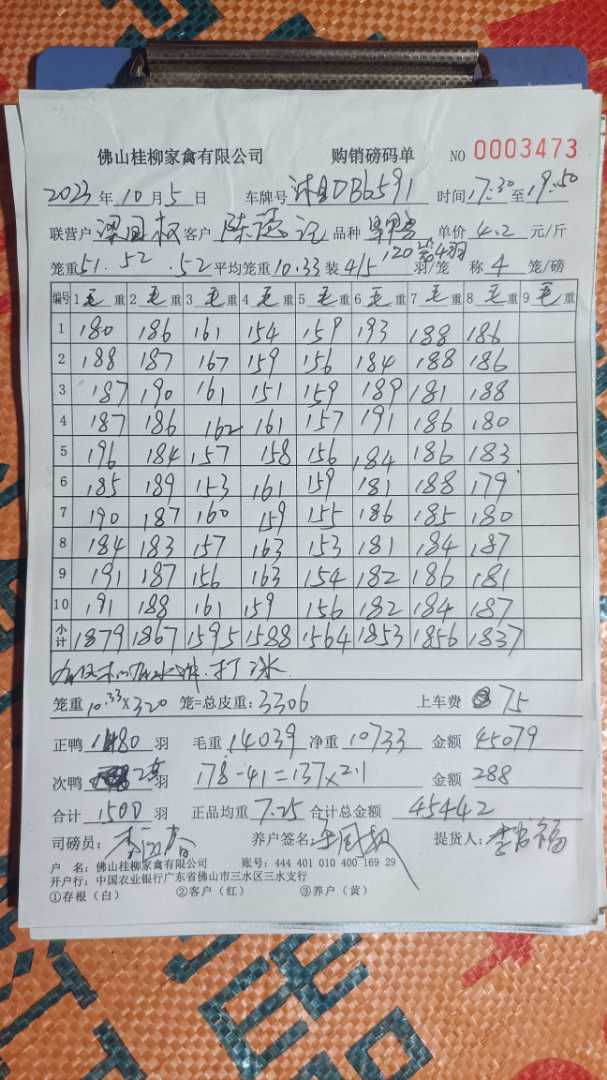 佛山桂柳家禽有限公司 购销磅码单 NO 0003473
2023年10月5日 车牌号 DB6591 时间17:30至19:50
联营户 权 客户 陈 记 品种 单价4.2元/斤
120 4羽
笼重51.52.52平均笼重10.33装4/5羽/笼 称4笼/磅
编号 1毛重 2毛重 3毛重 4毛重 5毛重 6毛重 7毛重 8毛重 9毛重
1 180 186 161 154 159 193 188 186
2 188 187 167 159 156 184 188 186
3 187 190 161 151 159 189 181 188
4 187 186 162 161 157 191 186 180
5 196 184 157 158 156 184 186 183
6 185 189 153 161 159 181 188 179
7 190 187 160 159 155 186 185 180
8 184 183 157 163 153 181 184 187
9 191 187 156 163 154 182 186 181
10 191 188 161 159 156 182 184 187
小计 1879 1867 1595 1588 1564 1853 1856 1837
打冰
笼重10.33×320笼=总皮重:3306 上车费 75
正鸭1480羽 毛重14039净重10733 金额45079
次鸭 羽 178-41=137×2.1 金额288
合计1500羽 正品均重7.25合计总金额45442
司磅员: 李 春 养户签名: 权 提货人:李 福
户 名:佛山桂柳家禽有限公司 账号:444 401 010 400 169 29
开户行:中国农业银行广东省佛山市三水区三水支行
①存根(白) ②客户(红) ③养户(黄)